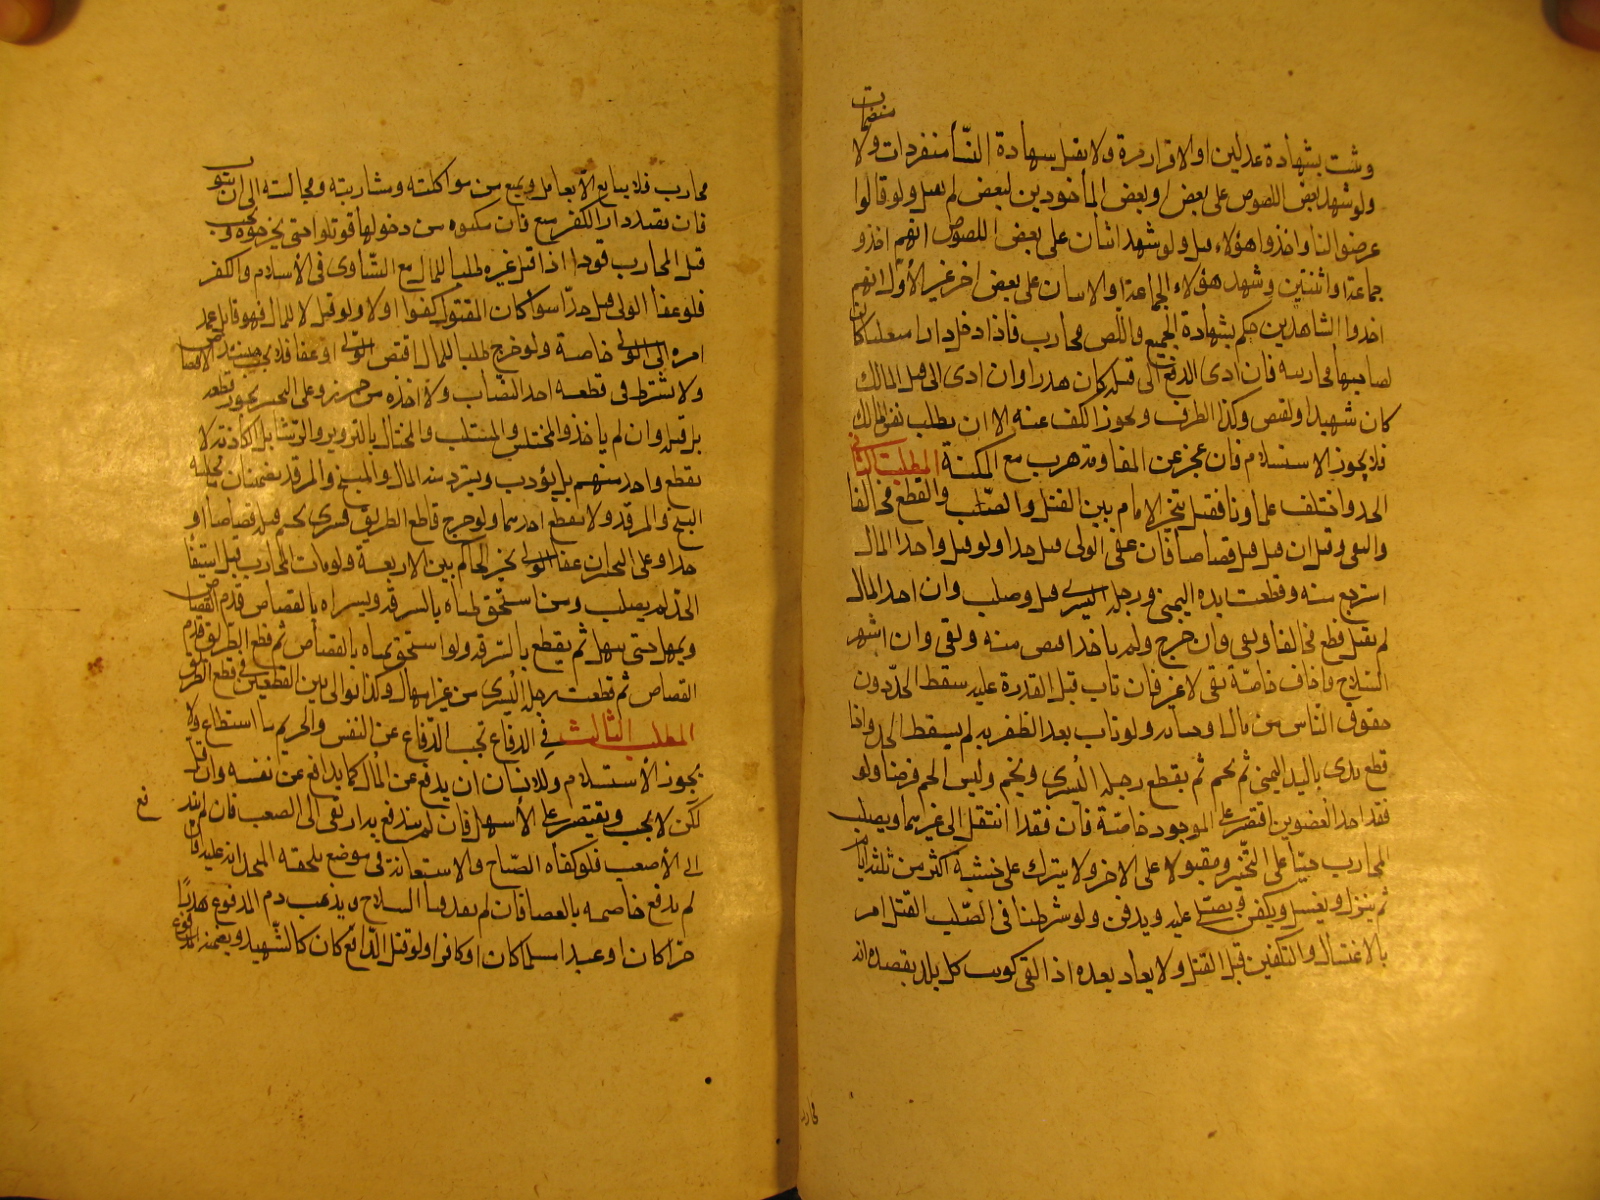 منضمات
وثبت بشهادة عدلين او الاقرار مرة ولا يقبل شهادة النسآء منفردات ولا
ولو شهد بعض اللصوص على بعض او بعض المأخوذين لبعض لم يقبل ولو قالوا
عرضوا لنا واخذوا هؤلاء قبل ولو شهد اثنان على بعض اللصوص انهم اخذوا
جماعة او اثنين وشهد هؤلاء الجماعة او الاثنان على بعض اخر غير الاول انهم
اخذوا الشاهدين حكم بشهادة الجميع واللص محارب فاذا دخل دارا متغلبا كان
لصاحبها محاربته فان ادى الدفع الى قتله كان هدرا وان ادى الى قتل المالك
كان شهيدا ولقص وكذا الطرف ويجوز الكف عنه الا ان يطلب نفس المالك
فلا يجوز الاستسلام فان عجز عن المقاومة هرب مع المكنة المطلب الثاني
الحد واختلف علماؤنا فقيل يتخير الامام بين القتل والصلب والقطع مخالفا
والنفى وقيل ان قتل قتل قصاصا فان عفى الولى قتل حدا ولو قتل واخذ المال
استرجع منه وقطعت يده اليمنى ورجله اليسرى قتل وصلب وان اخذ المال
لم يقتل قطع مخالفا ونفى وان جرح ولم ياخذ اقتص منه ونفى وان اشهر
السلاح واخاف خاصة نفى لا غير فان تاب قبل القدرة عليه سقط الحد دون
حقوق الناس من مال او جناية ولو تاب بعد الظفر به لم يسقط الحد واذا
قطع بدى باليد اليمنى ثم يحسم ثم يقطع رجله اليسرى ويحسم وليس الحسم فرضا ولو
فقد احد العضوين اقتصر على الموجود خاصة فان فقدا انتقل الى غيرهما ويصلب
المحارب حيا على التخيير ومقتولا على الاخر ولا يترك على خشبة اكثر من ثلثة ايام
ثم ينزل ويغسل ويكفن ويصلى عليه ويدفن ولو شرطنا فى الصلب القتل امر
بالاغتسال والتكفين قبل القتل ولا يعاد بعده اذا نفى كوتب كل بلد يقصده انه
محارب
محارب فلا يبايع ولا يعامل ويمنع من مواكلته ومشاربته ومجالسته الى ان يتوب
فان قصد دار الكفر منع فان مكنوه من دخولها قوتلوا حتى يخرجوه ويجب
قتل المحارب قودا اذا قتل غيره طلبا للمال مع التساوى فى الاسلام والكفر
فلو عفا الولى قتل حدا سوآء كان المقتول كفوا اولا ولو قتل لا للمال فهو قاتل عمد
امره الى الولى خاصة ولو جرح طلبا للمال اقتص الولى او عفا فلا يجب حينئذ الاقتصاص
ولا تشترط فى قطعه اخذ النصاب ولا اخذه من حرز وعلى التخيير يجوز قطعه
بل قتله وان لم ياخذ والمختلس والمستلب والمحتال بالتزوير والرسائل الكاذبة لا
يقطع واحد منهم بل يؤدب ويسترد منه المال والمبنج والمرقد يضمنان ما يجنيه
البنج والمرقد ولا يقطع احدهما ولو جرح قاطع الطريق فسرى تحتم قتله قصاصا او
حدا وعلى التخيير ان عفا الولى تخير الحاكم بين الاربعة ولو مات المحارب قبل استيفآء
الحد لم يصلب ومن استحق يمناه بالسرقة ويسراه بالقصاص قدم القصاص
ويمهل حتى يبهل ثم يقطع بالسرقة ولو استحق يمناه بالقصاص ثم قطع الطريق قدم
القصاص ثم قطعت رجله اليسرى من غير امهال وكذا يوالى بين القطعين فى قطع الطريق
المطلب الثالث فى الدفاع تجب الدفاع عن النفس والحريم ما استطاع ولا
يجوز الاستسلام وللانسان ان يدفع عن المال كما يدافع عن نفسه وان قل
لكن لا يجب ويقتصر على الاسهل فان لم يندفع به ارتقى الى الصعب فان لم يند
فع
الى الاصعب فلو كفاه الصياح والاستعانة فى موضع يلحقه المنجد اند عليه فان
لم يدفع خاصمه بالعصا فان لم يفد فبالسلاح ويذهب دم المدفوع هدرا
حرا كان او عبدا مسلما كان او كافرا ولو قتل الدافع كان كالشهيد ويضمنه المدفوع